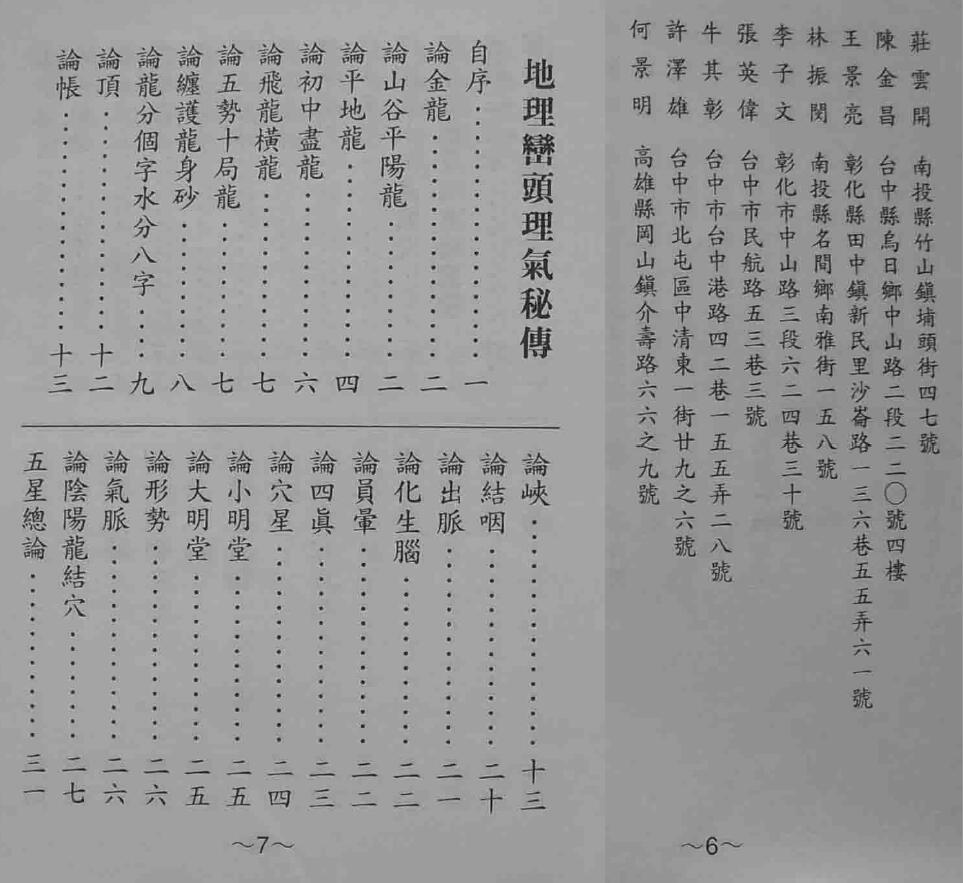 莊雲開 南投縣竹山鎮埔頭街四七號
陳金昌 台中縣烏日鄉中山路二段二二〇號四樓
王景亮 彰化縣田中鎮新民里沙崙路一三六巷五五弄六一號
林振閔 南投縣名間鄉南雅街一五八號
李子文 彰化市中山路三段六二四巷三十號
張英偉 台中市民航路五三巷三號
牛其彰 台中市台中港路四二巷一五五弄二八號
許澤雄 台中市北屯區中清東一街廿九之六號
何景明 高雄縣岡山鎮介壽路六六之九號
~6~
地理巒頭理氣秘傳
自序………………一
論金龍………………二
論山谷平陽龍………………二
論平地龍………………四
論初中盡龍………………六
論飛龍橫龍………………七
論五勢十局龍………………七
論纏護龍身砂………………八
論龍分個字水分八字………………九
論頂………………十二
論帳………………十三
論峽………………十三
論結咽………………二十
論出脈………………二一
論化生腦………………二二
論員暈………………二二
論四眞………………二三
論穴星………………二四
論小明堂………………二五
論大明堂………………二五
論形勢………………二六
論氣脈………………二六
論陰陽龍結穴………………二七
五星總論………………三一
~7~